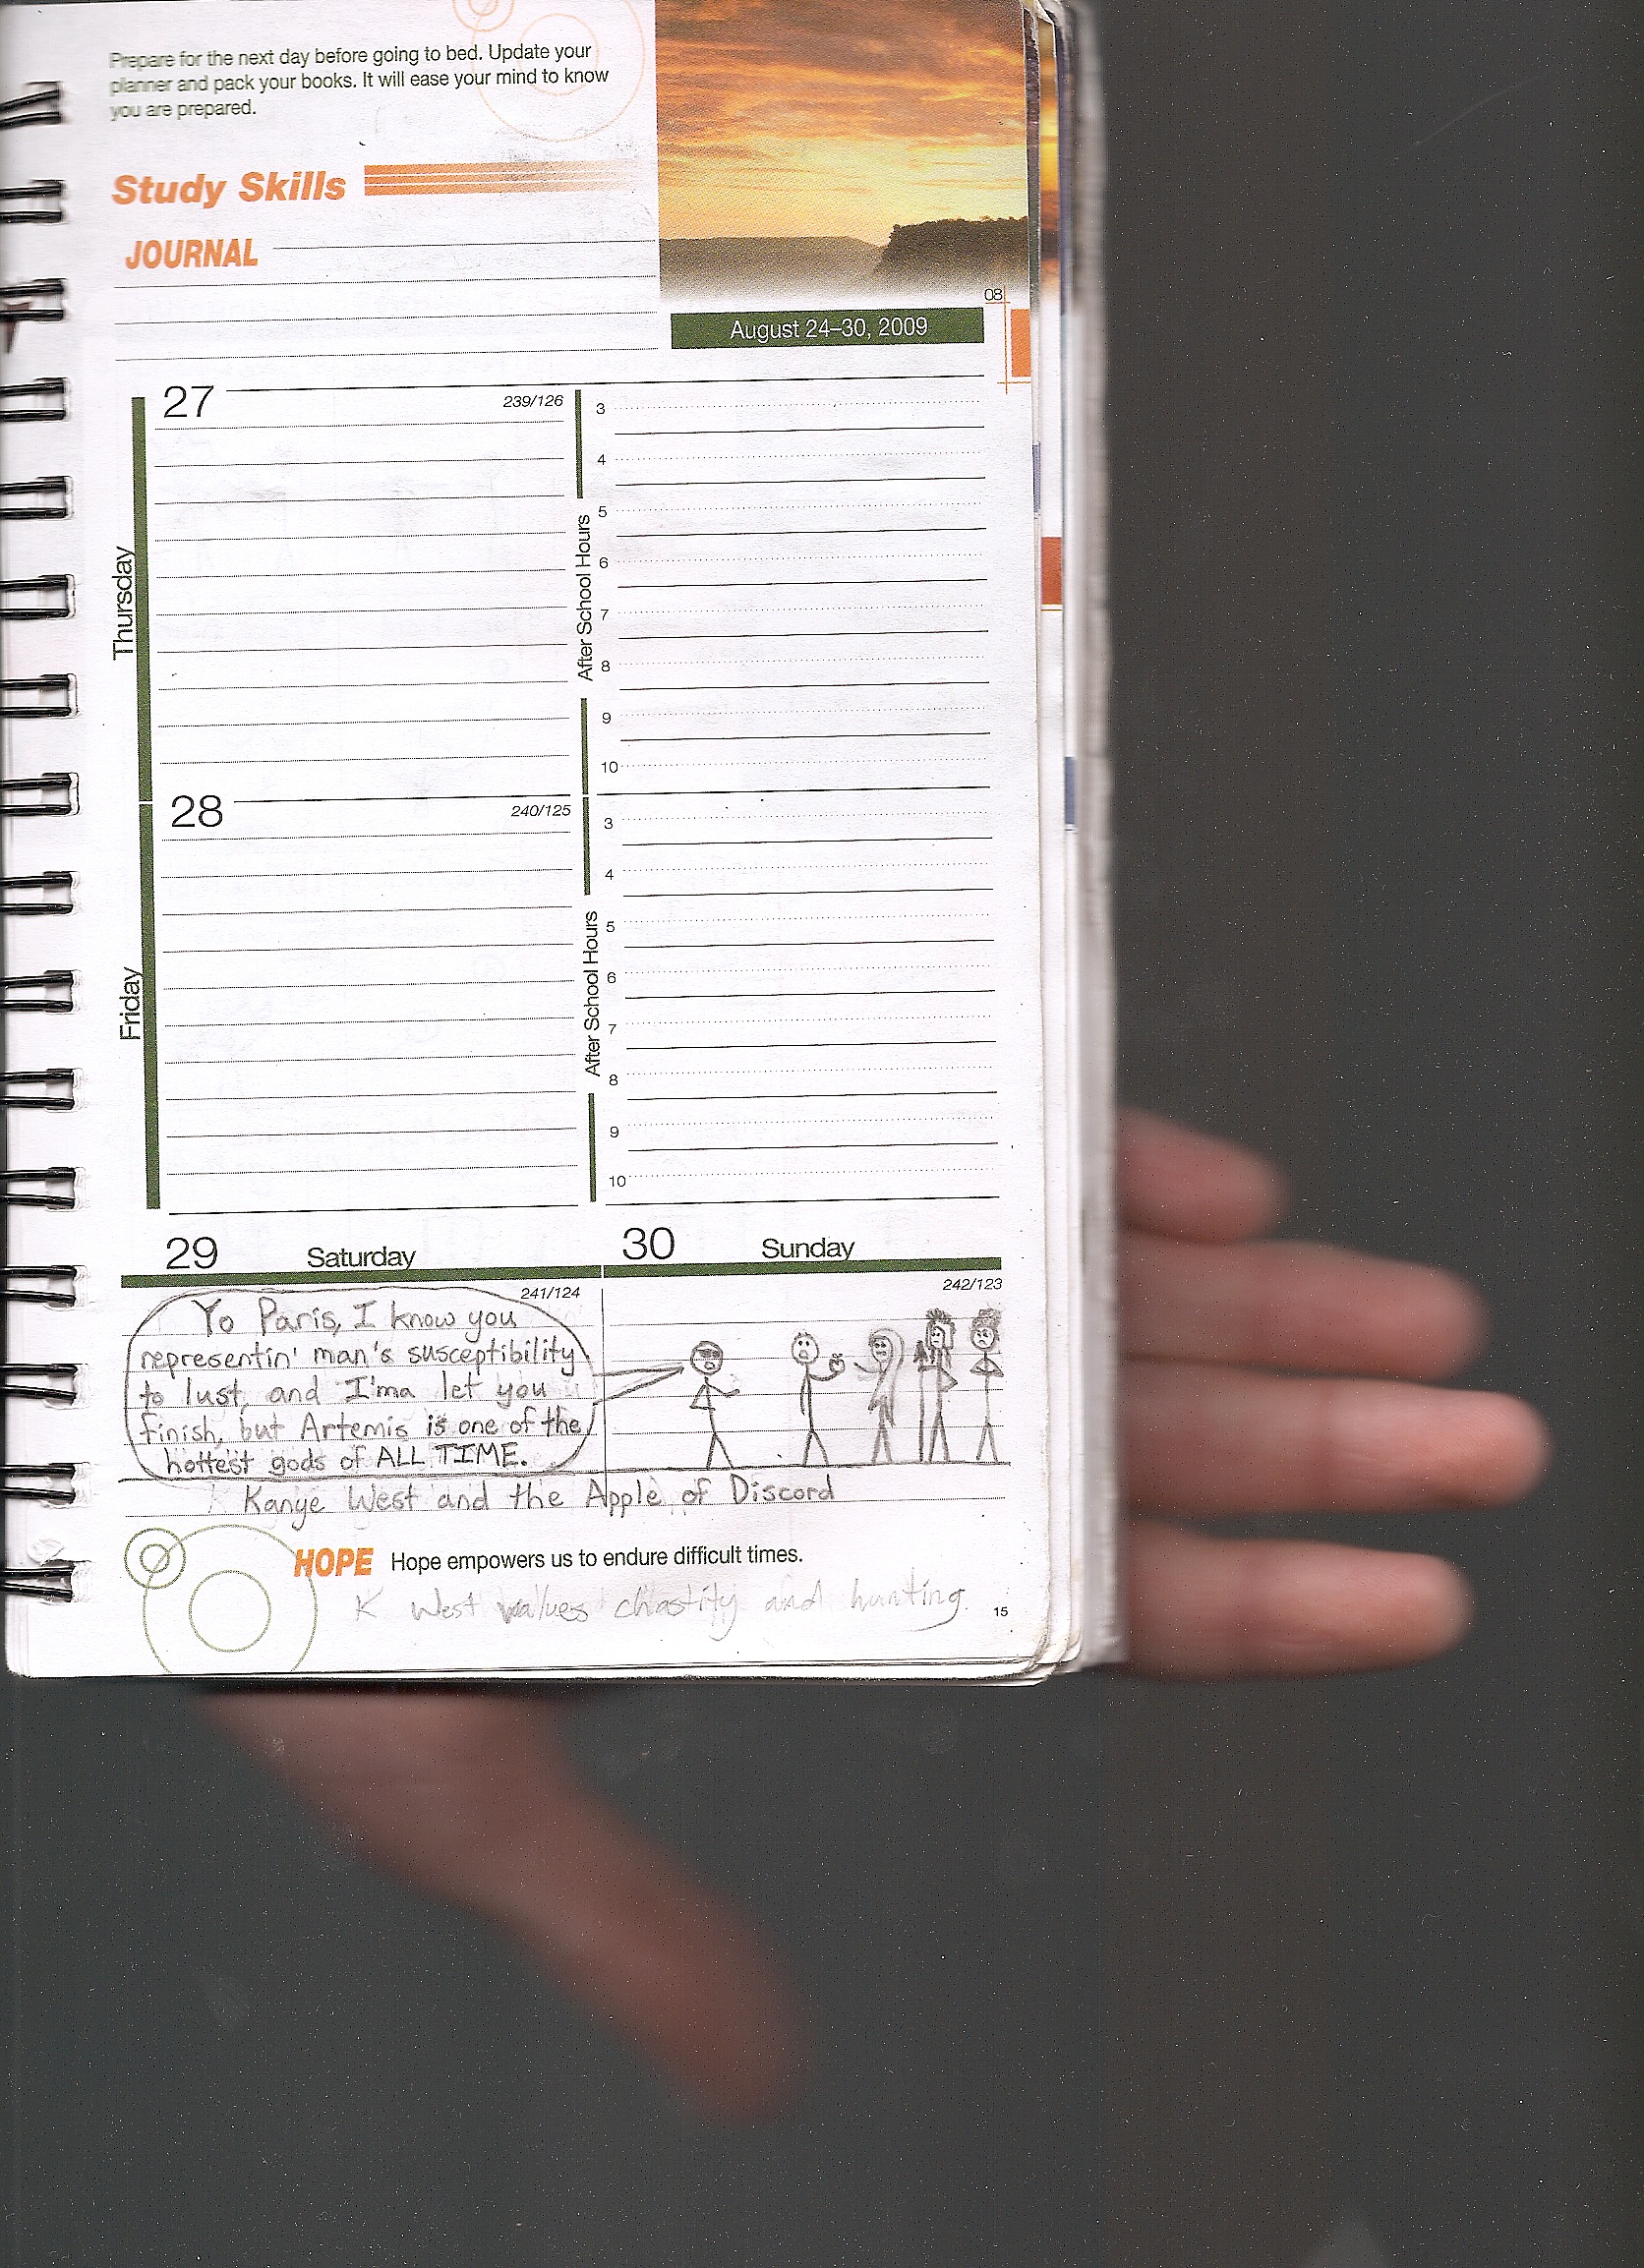 Prepare for the next day before going to bed. Update your
planner and pack your books. It will ease your mind to know
you are prepared.
Study Skills
JOURNAL
08
August 24–30, 2009
Thursday
27
239/126
After School Hours
3
4
5
6
7
8
9
10
Friday
28
240/125
After School Hours
3
4
5
6
7
8
9
10
29 Saturday
241/124
30 Sunday
242/123
Yo Paris, I know you
representin' man's susceptibility
to lust, and I'ma let you
finish, but Artemis is one of the
hottest gods of ALL TIME.
Kanye West and the Apple of Discord
HOPE Hope empowers us to endure difficult times.
K West values chastity and hunting.
15